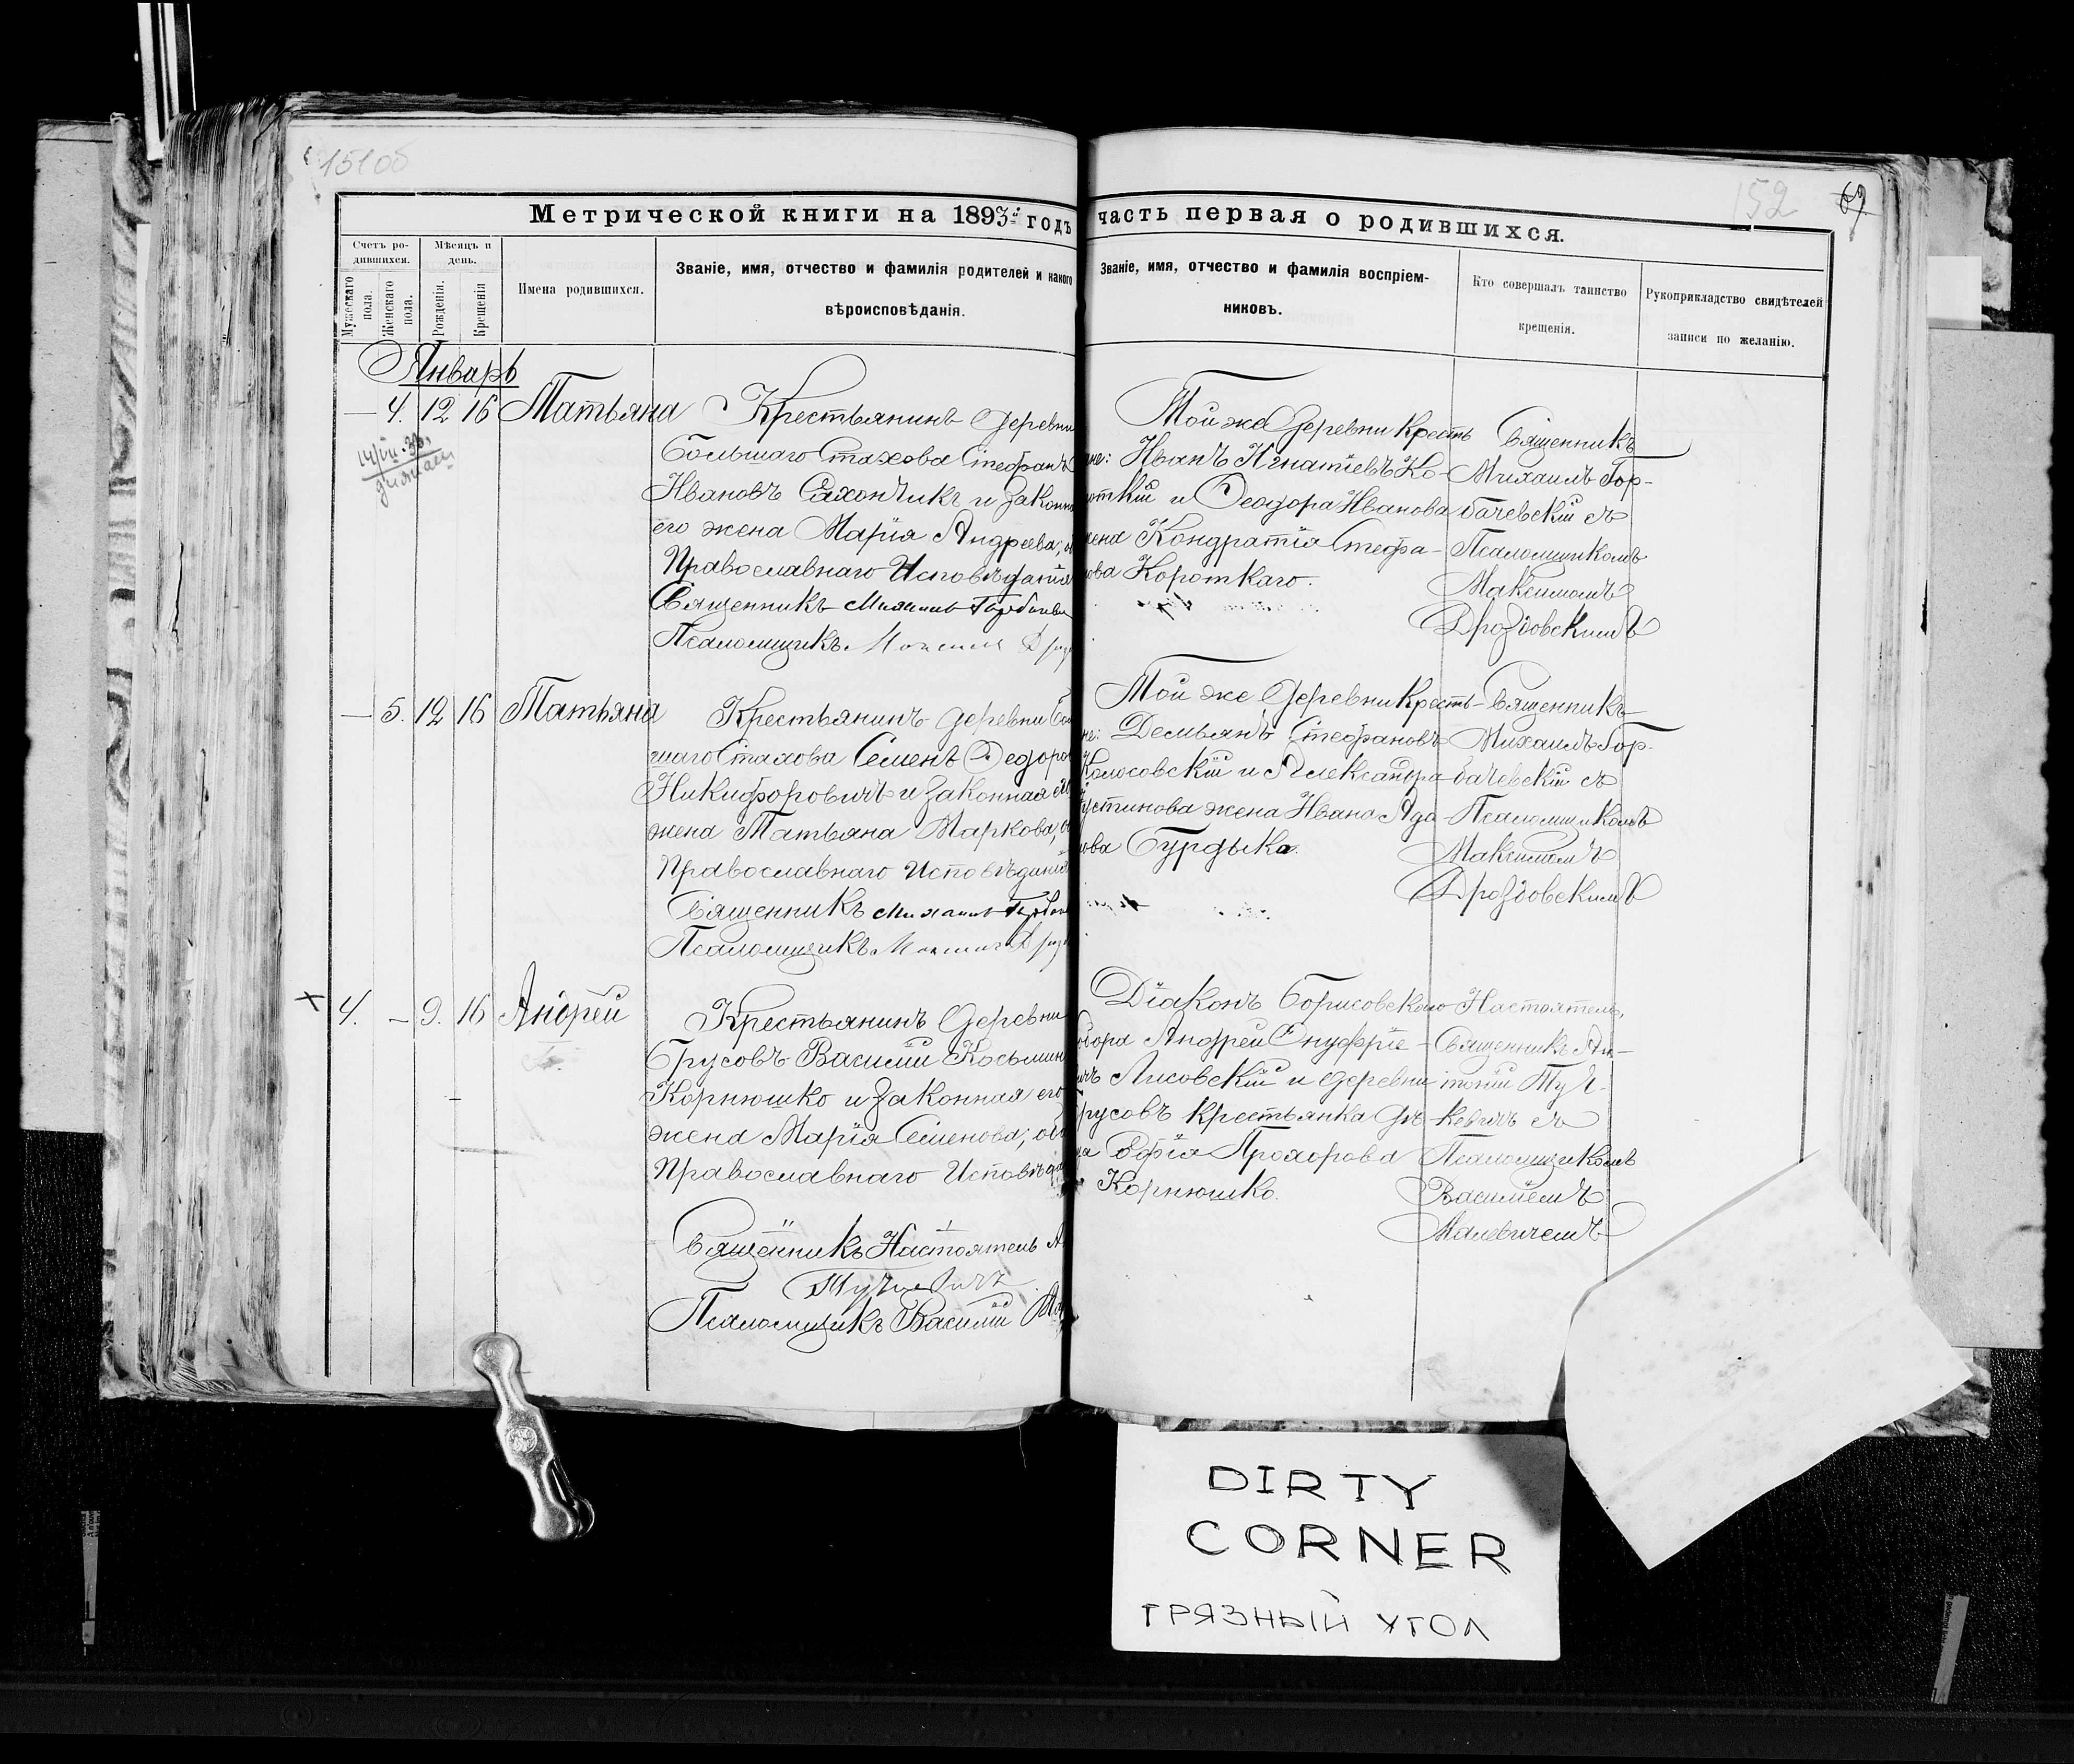 151об
152
69
Метрической книги на 1893й годъ часть первая о родившихся.
Счетъ ро-
дившихся.
Мужескаго
пола.
Женскаго
пола.
Мѣсяцъ и
день.
Рожденія.
Крещенія
Имена родившихся.
Званіе, имя, отчество и фамилія родителей и какого
вѣроисповѣданія.
Званіе, имя, отчество и фамилія воспріем-
никовъ.
Кто совершалъ таинство
крещенія.
Рукоприкладство свидѣтелей
записи по желанію.
Январь
— 4. 12 16 Татьяна
Крестьянинъ деревни
Большаго Стахова Стефанъ
Ивановъ Сахончикъ и законн
его жена Марія Андреева; о
Православнаго Исповѣданія
Священникъ Михаилъ Горбачев
Псаломщикъ Максимъ Дроз
Той же деревни кресть
не: Иванъ Игнатіевъ Ко-
откій и Ѳеодора Иванова
жена Кондратія Стефа-
нова Короткаго.
Священникъ
Михаилъ Гор-
бачевскій съ
Псаломщикомъ
Максимомъ
Дроздовскимъ
— 5. 12 16 Татьяна
Крестьянинъ деревни Бол
шаго Стахова Семенъ Ѳедоров
Никифоровичъ и законная его
жена Татьяна Маркова; о
Православнаго Исповѣданія
Священникъ Михаилъ Горбач
Псаломщикъ Максимъ Дроз
Той же деревни кресть-
не: Демьянъ Стефановъ
Колосовскій и Александра
устинова жена Ивана Ада
мова Бурдыка.
Священникъ
Михаилъ Гор-
бачевскій съ
Псаломщикомъ
Максимомъ
Дроздовскимъ
4. — 9. 16 Андрей
Крестьянинъ деревни
Брусовъ Василій Косьмин
Корнюшко и законная его
жена Марія Семенова; оба
Православнаго Исповѣда
Священникъ Настоятель А
Тучкевичъ
Псаломщикъ Василій Мал
Діаконъ Борисовскаго
обора Андрей Онуфріе-
ичъ Лисовскій и деревни
русовъ крестьянка дѣ-
ца Софія Прохорова
Корнюшко.
Настоятель,
Священникъ Ан-
тоній Туч-
кевичъ съ
Псаломщикомъ
Василіемъ
Малевичемъ
DIRTY
CORNER
ГРЯЗНЫЙ УГОЛ